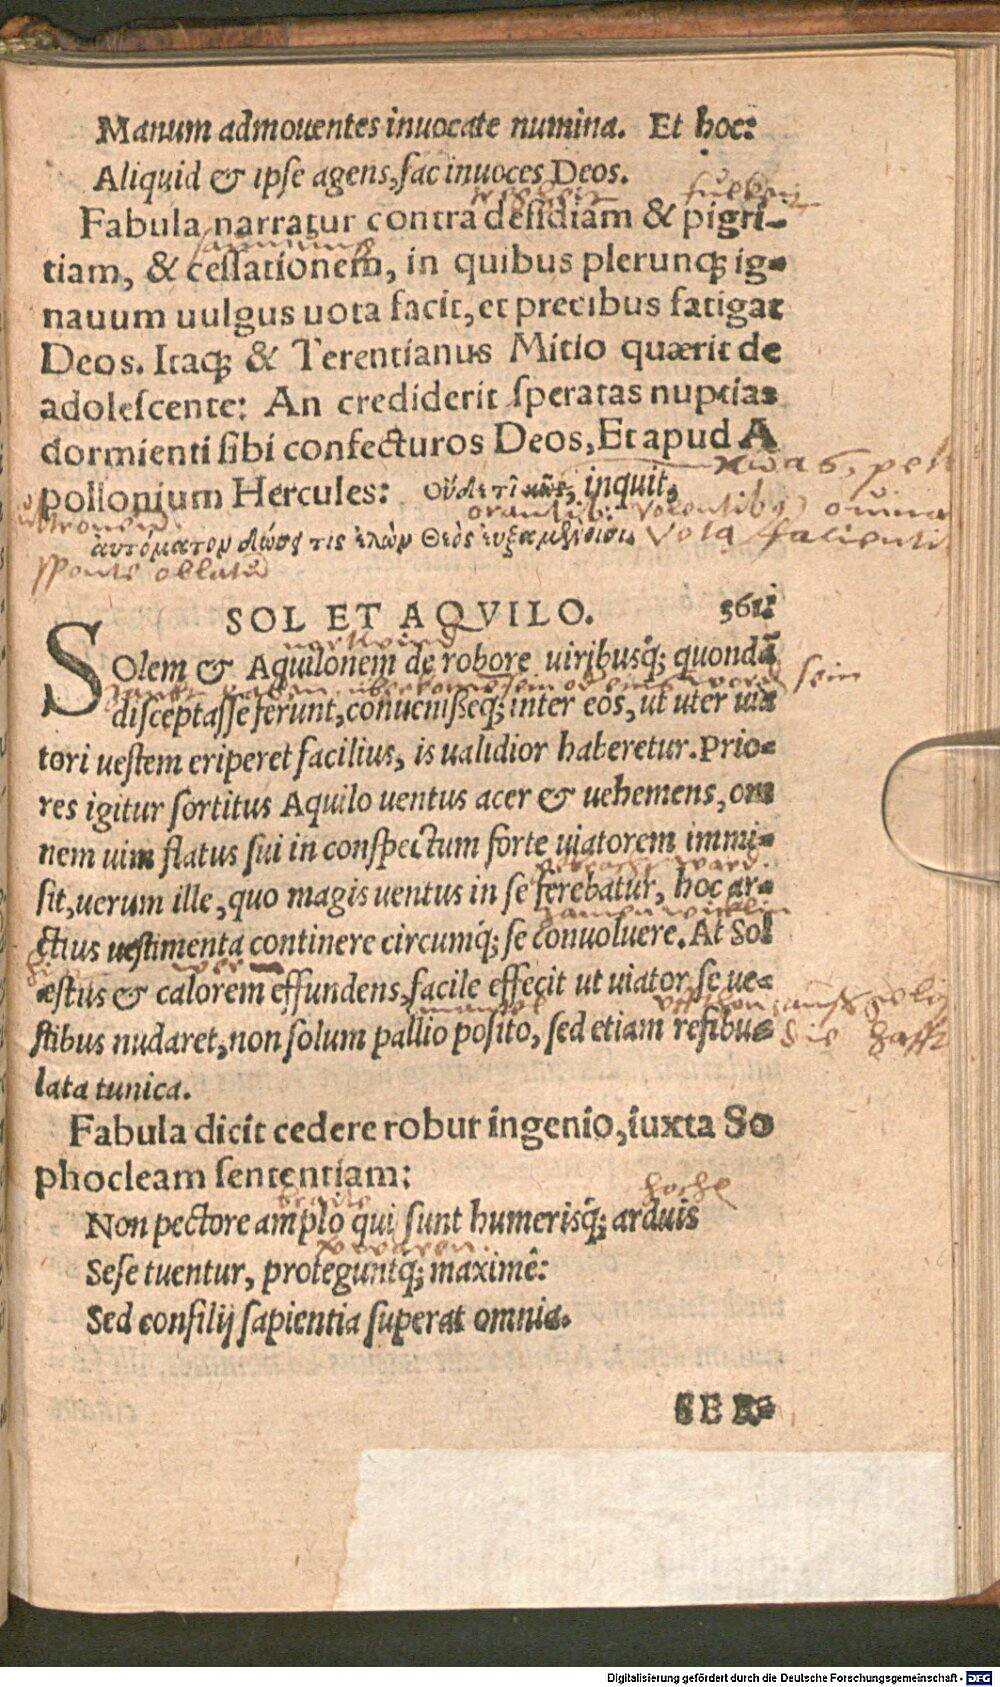 Manum admouentes inuocate numina. Et hoc:
Aliquid & ipse agens, fac inuoces Deos.
Fabula narratur contra desidiam & pigri-
tiam, & cessationem, in quibus plerunq; ig-
nauum uulgus uota facit, et precibus fatigat
Deos. Itaq; & Terentianus Mitio quærit de
adolescente: An crediderit speratas nuptias
dormienti sibi confecturos Deos, Et apud A
pollonium Hercules: inquit,
orantib: volentibus omnia
αὐτόματον δώσει τις ἑλὼν Θεὸς
vota facienti
sponte oblatu
SOL ET AQVILO. 361.
SOlem & Aquilonem de robore uiribusq́; quondā
sein
disceptasse ferunt, conuenisseq́; inter eos, ut uter uia
tori uestem eriperet facilius, is ualidior haberetur. Prio-
res igitur sortitus Aquilo uentus acer & uehemens, om
nem uim flatus sui in conspectum forte uiatorem immi-
sit, uerum ille, quo magis uentus in se ferebatur, hoc ar-
ctius uestimenta continere circumq́; se conuoluere. At Sol
æstus & calorem effundens, facile effecit ut uiator se ue-
mantel
stibus nudaret, non solum pallio posito, sed etiam resibu-
lata tunica.
Fabula dicit cedere robur ingenio, iuxta So
phocleam sententiam:
hoche
Non pectore amplo qui sunt humerisq́; arduis
Sese tuentur, proteguntq́; maximê:
Sed consilij sapientia superat omnia.
SER-
Digitalisierung gefördert durch die Deutsche Forschungsgemeinschaft - DFG